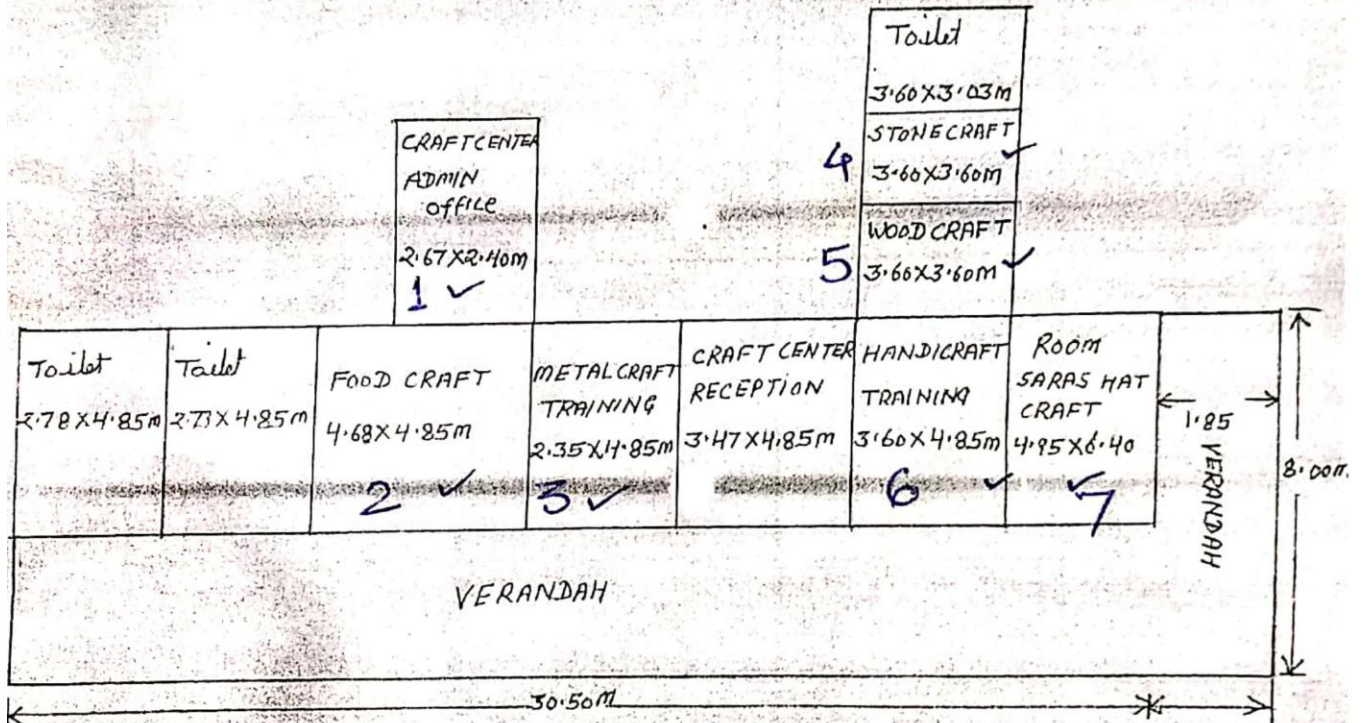 Toilet
3.60X3.03m
STONECRAFT
4
3.60X3.60m
WOODCRAFT
5
3.60X3.60m
CRAFTCENTER
ADMIN
office
2.67X2.40m
1
Toilet
2.78X4.85m
Toilet
2.73X4.85m
FOOD CRAFT
4.68X4.85m
2
METALCRAFT
TRAINING
2.35X4.85m
3
CRAFT CENTER
RECEPTION
3.47X4.85m
HANDICRAFT
TRAINING
3.60X4.85m
6
ROOM
SARAS HAT
CRAFT
4.95X6.40
7
1.85
VERANDAH
8.00m
VERANDAH
30.50m